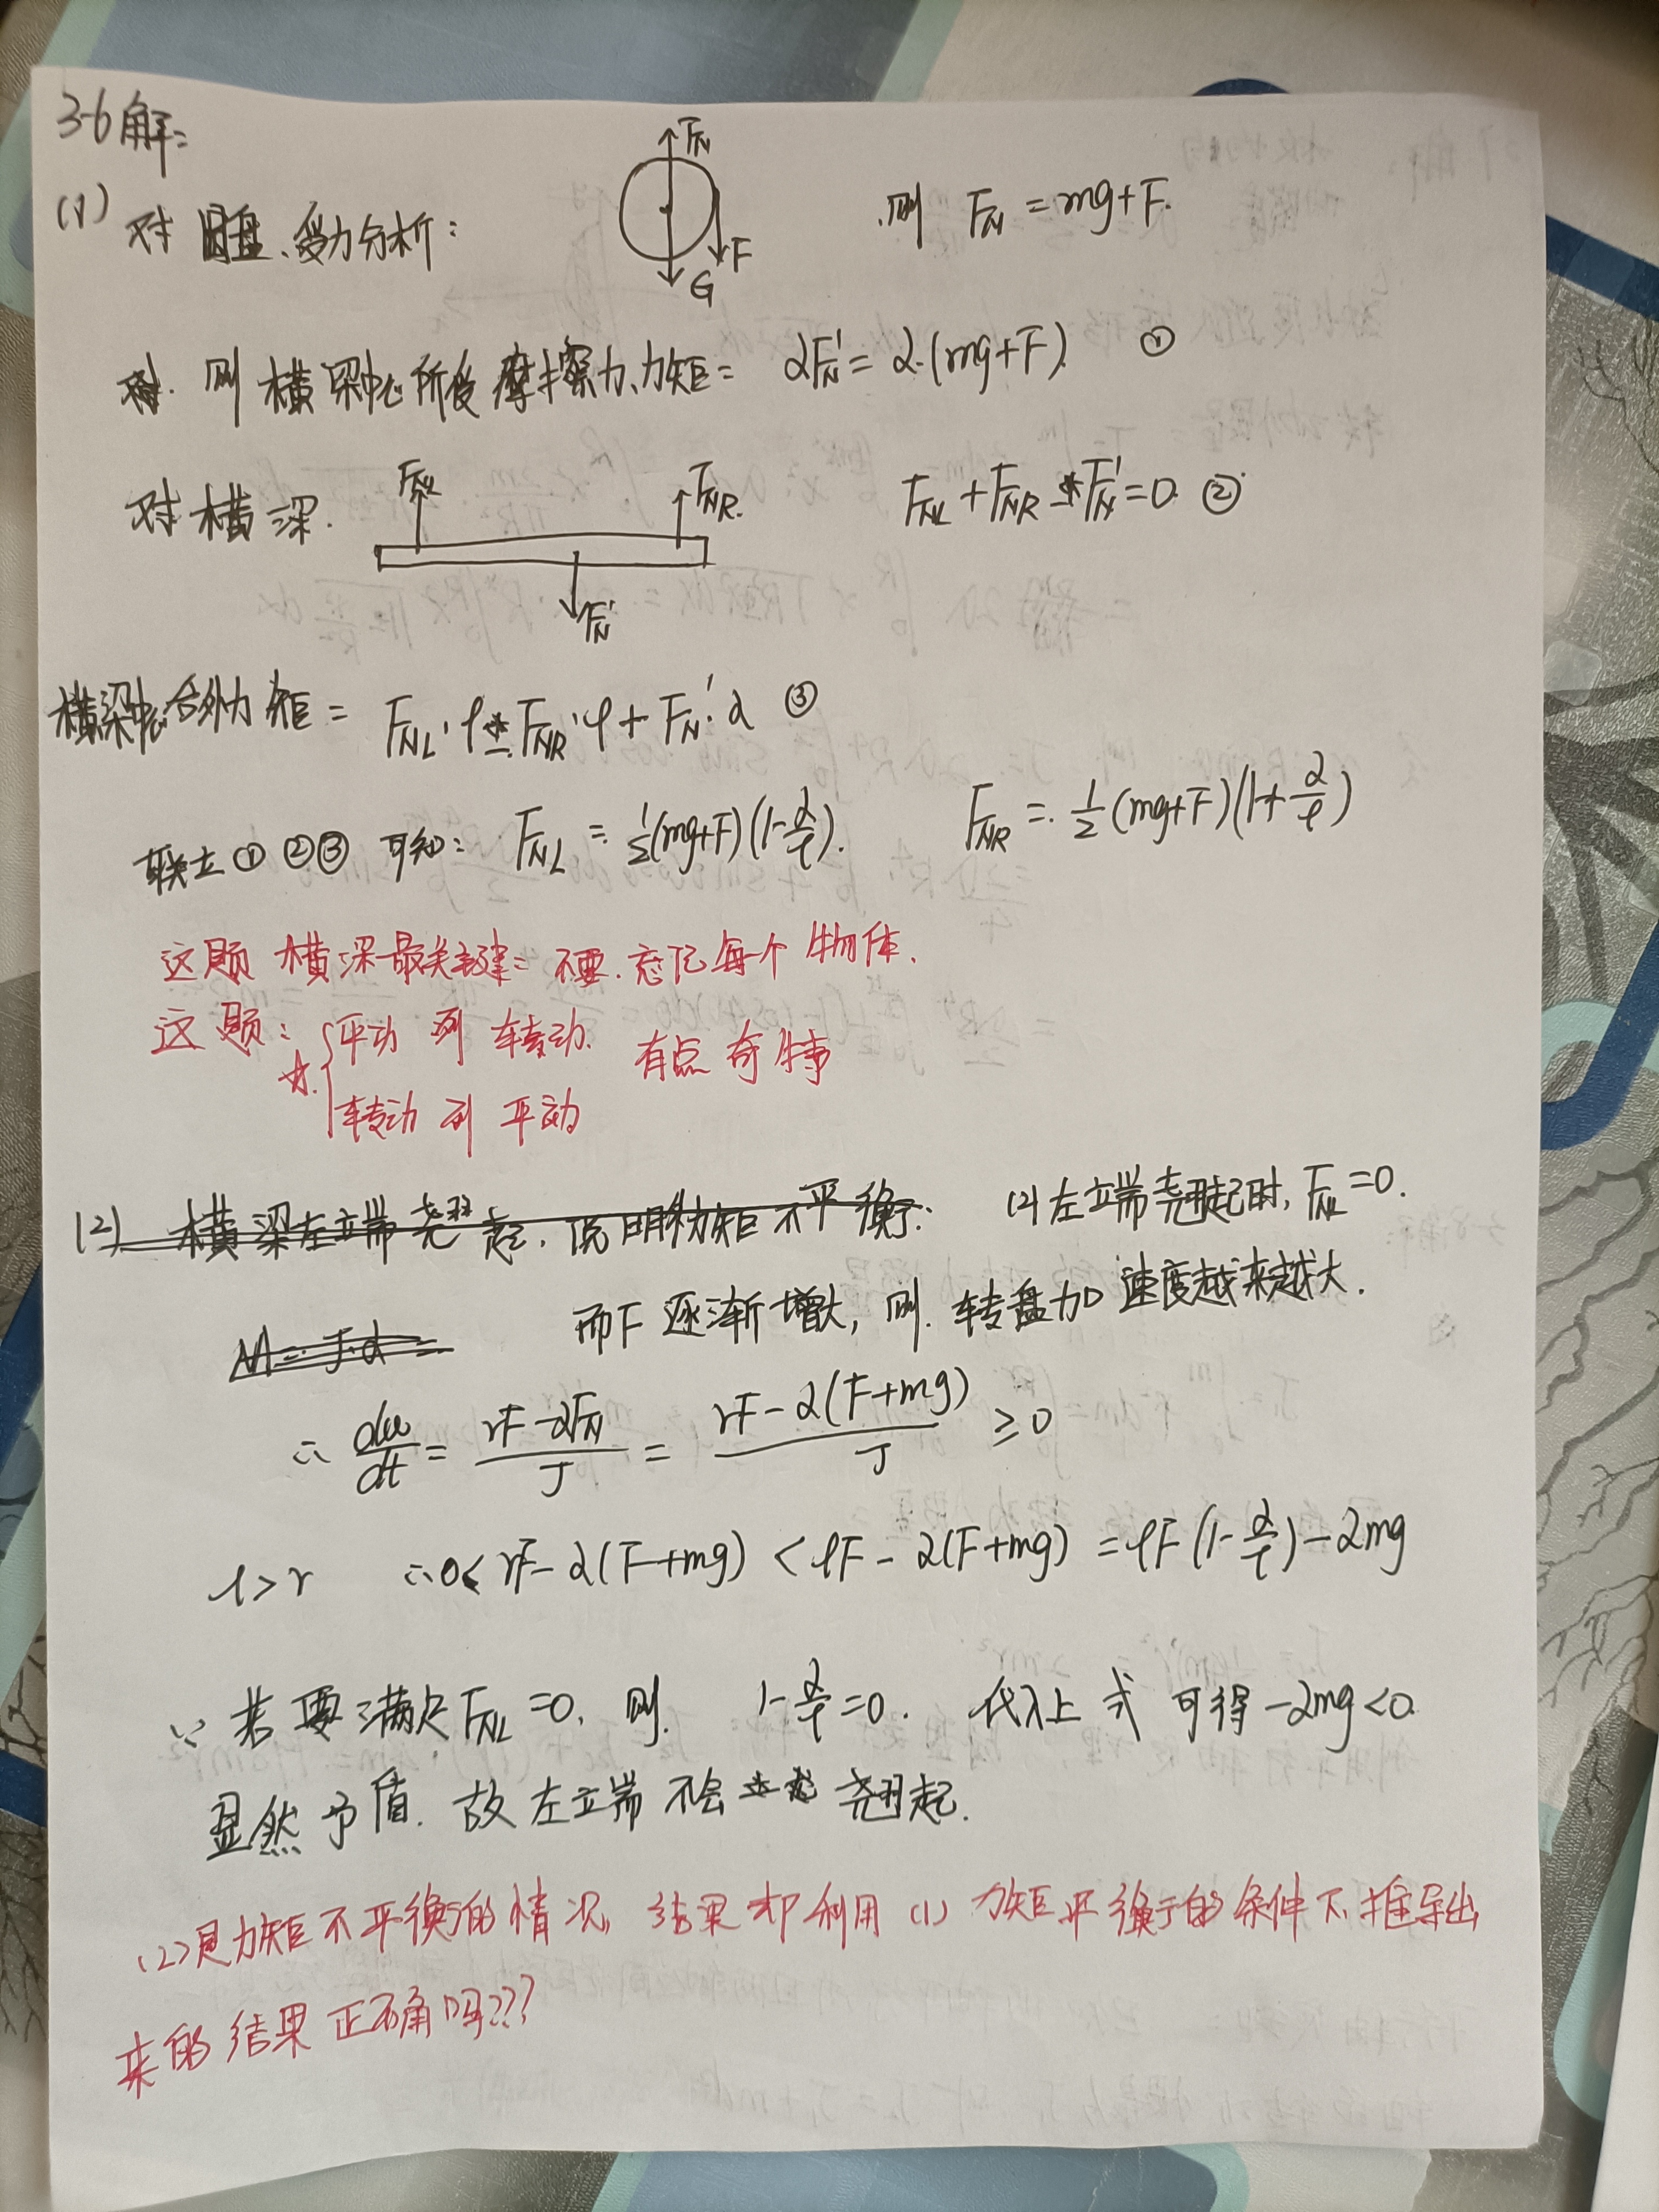 3-6解:
(1) 对圆盘、受力分析: F_N F G 则 F_N = mg+F.
则横梁中心所受摩擦力、力矩= αF_N' = α·(mg+F). ①
对横深. F_NL F_NR. F_N' F_NL + F_NR - F_N' = 0. ②
横梁中心合外力矩= F_NL·ℓ - F_NR·ℓ + F_N'·α ③
联立①②③可知: F_NL = ½(mg+F)(1-α/ℓ). F_NR = ½(mg+F)(1+α/ℓ)
这题横深最关键= 不要.忘记每个物体.
这题: 平动列转动. 有点奇特
☆. 转动列平动
(2)横梁左立端翘起,说明力矩不平衡. (2)左立端翘起时, F_NL=0.
M=J·α= 而F逐渐增大,则.转盘加速度越来越大.
∴ dω/dt = (rF-αF_N)/J = (rF-α(F+mg))/J ≥0
ℓ>r ∴0< rF-α(F+mg) < ℓF-α(F+mg) = ℓF(1-α/ℓ)-αmg
∵若要满足F_NL=0,则. 1-α/ℓ=0. 代入上式可得-αmg<0.
显然矛盾.故左立端不会翘起.
(2)是力矩不平衡的情况,结果却利用(1)力矩平衡的条件下推导出
来的结果正确吗???